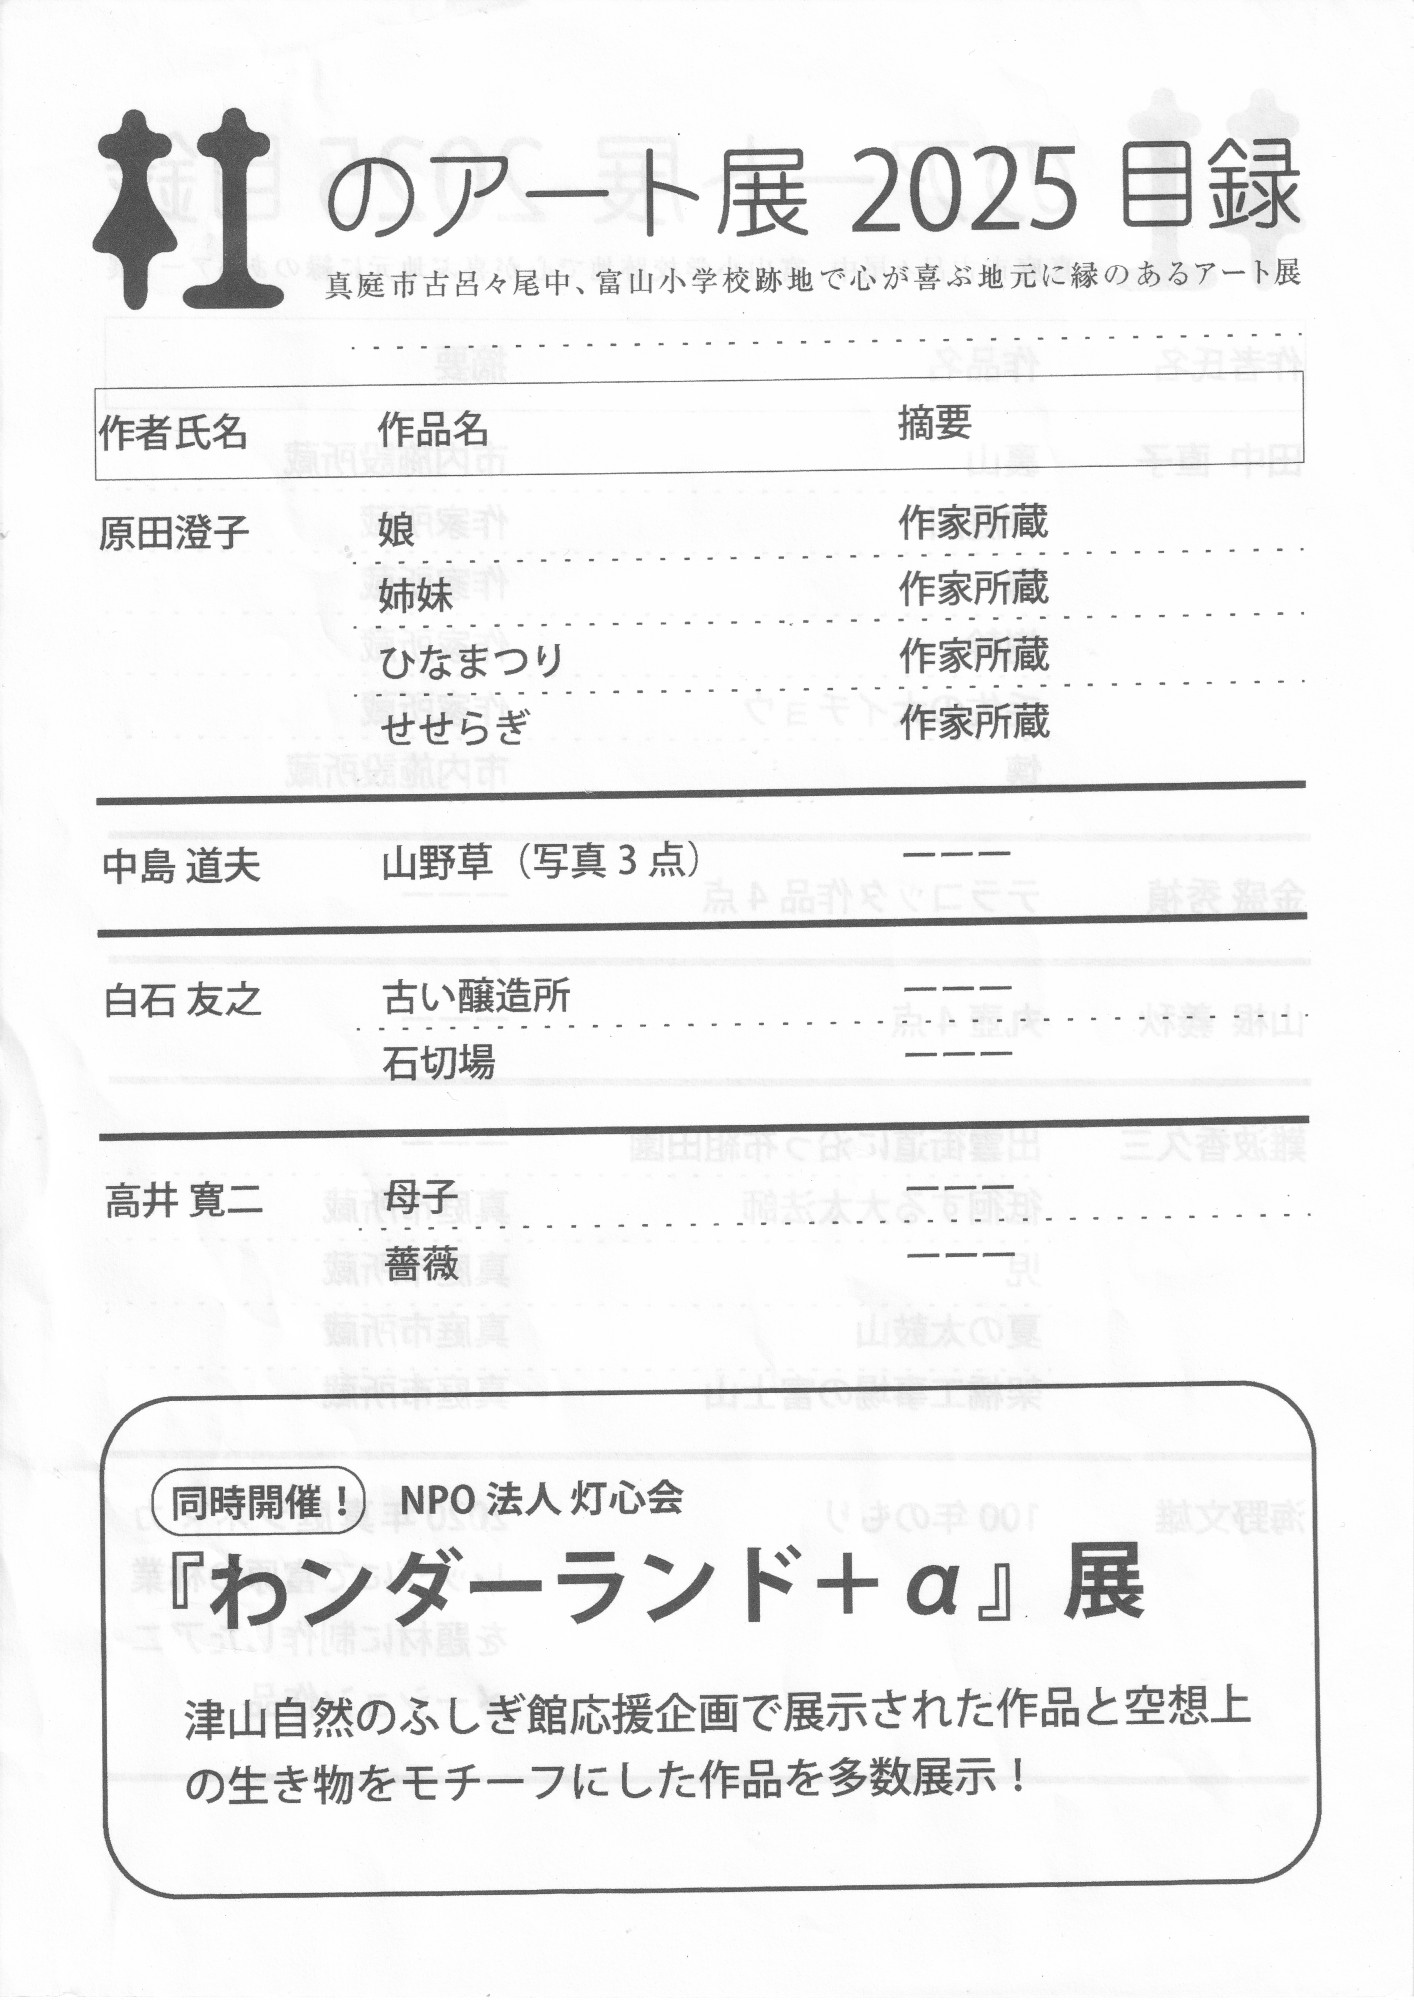 杜のアート展 2025 目録
真庭市古呂々尾中、富山小学校跡地で心が喜ぶ地元に縁のあるアート展
作者氏名 作品名 摘要
原田澄子 娘 作家所蔵
姉妹 作家所蔵
ひなまつり 作家所蔵
せせらぎ 作家所蔵
中島 道夫 山野草（写真 3 点） ーーー
白石 友之 古い醸造所 ーーー
石切場 ーーー
高井 寛二 母子 ーーー
薔薇 ーーー
同時開催！ NPO 法人 灯心会
『わンダーランド＋α』展
津山自然のふしぎ館応援企画で展示された作品と空想上
の生き物をモチーフにした作品を多数展示！